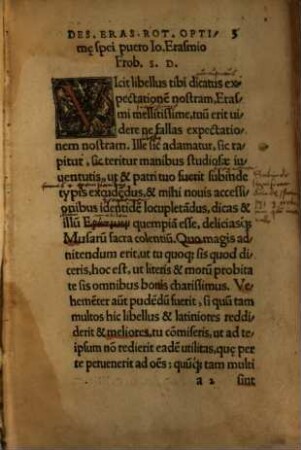 DES. ERAS. ROT. OPTI⸗ 5
mę spei puero Io. Erasmio
Frob. S. D.
VIcit libellus tibi dicatus ex
pectationē nostram, Eras
mi mellitissime, tuū erit vi
dere ne fallas expectatio⸗
nem nostram. Ille sic adamatur, sic ra⸗
pitur, sic teritur manibus studiosæ iu⸗
uentutis, ut & patri tuo fuerit subinde
typis excudēdus, & mihi nouis accessi⸗
onibus identidē locupletādus, dicas &
illū quempiā esse, deliciasq́;
Musarū sacra colentiū. Quo magis ad
nitendum erit, ut tu quoq; sis quod di
ceris, hoc est, ut literis & morū probita
te sis omnibus bonis charissimus. Ve⸗
hemēter aūt pudēdū fuerit, si quū tam
multos hic libellus & latiniores reddi⸗
derit & meliores, tu cōmiseris, ut ad te
ipsum nō redierit eadē utilitas, quę per
te peruenerit ad oēs: quūq́; tam multi
a 2 sint